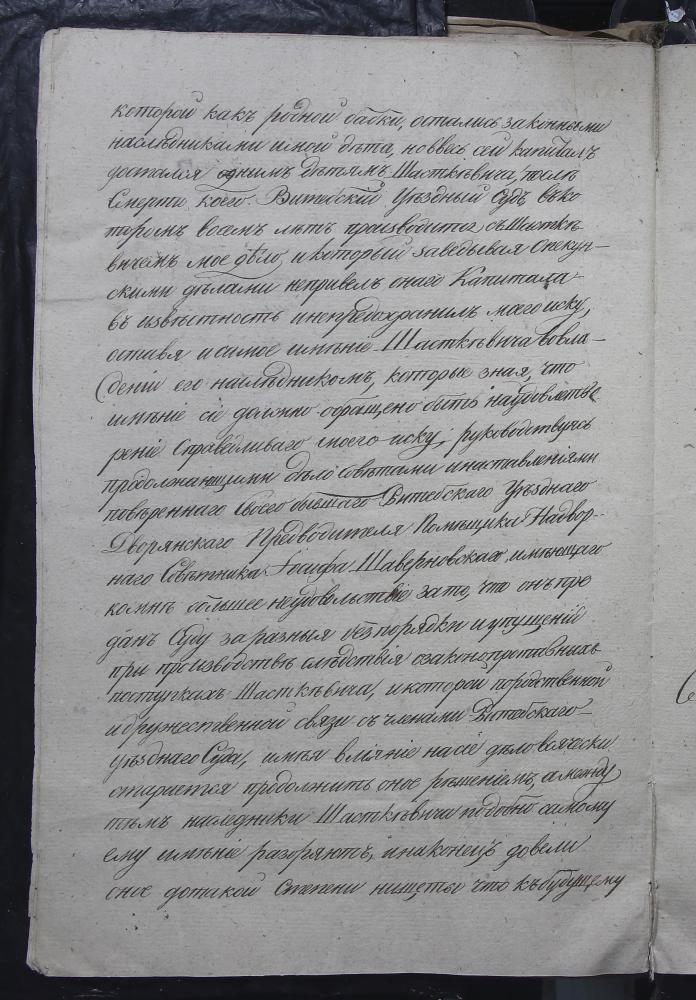 которой какъ родной бабки, остались законными
наслѣдниками и мои дѣти, но ввесь сей капиталъ
достался однимъ дѣтямъ Шасткѣвича, послѣ
Смерти коего. Витебский Уѣздный Судъ въ ко
торомъ восемь лѣтъ производится, съ Шасткѣ
вичемъ мое дѣло, и который заведывая Опекун-
скими дѣлами непривелъ онаго Капитала
въ извѣстность и непредохранилъ моего иску,
оставя и самое имѣніе Шасткѣвича вовла-
деніи его наслѣдникомъ, которые зная, что
имѣніе сіе должно обращено быть наудовлетво
реніе Справедливаго моего иску; руководствуясь
продолжающими дѣло совѣтами и наставленіями
повѣреннаго Своего бывшаго Витебскаго Уѣзднаго
Дворянскаго Предводителя Помѣщика Надвор-
наго Совѣтника Іосифа Шаверновскаго, имѣющаго
комнѣ большее неудовольствіе зато, что онъ пре
данъ Суду за разныя безпорядки и упущеній
при производствѣ слѣдствія озаконопротивныхъ
поступкахъ Шасткѣвича, и которой породственной
и дружественной связи съ членами Витебскаго-
уѣзднаго Суда, имѣя вліяніе на сіе дѣло всячески
старается продолжить оное рѣшеніемъ, а между
тѣмъ наследники Шасткѣвича подобно самому
ему имѣніе разоряютъ, и наконецъ довели
оное дотакой Степени нищеты что къ будущему